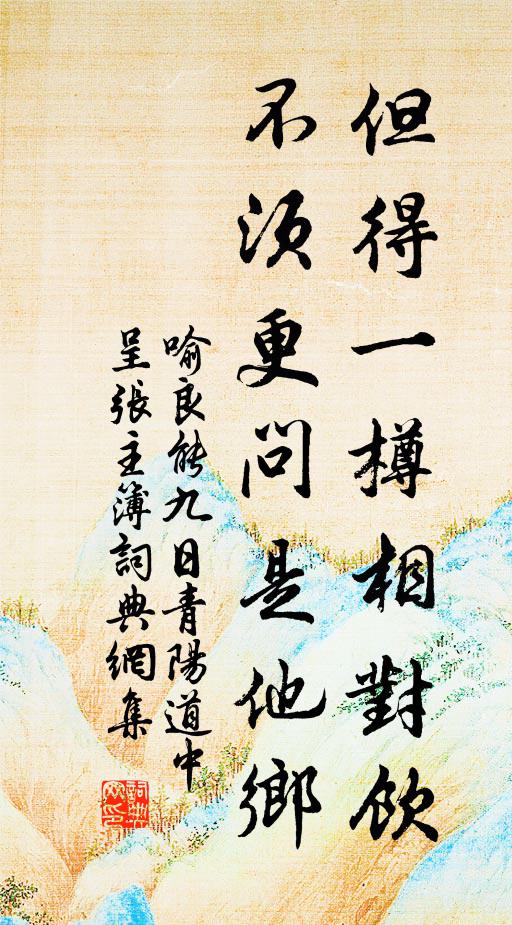 但得一樽相對飲
不須更問是他鄉
喻良能九日青陽道中
呈張主簿詞典網集
詞典網印